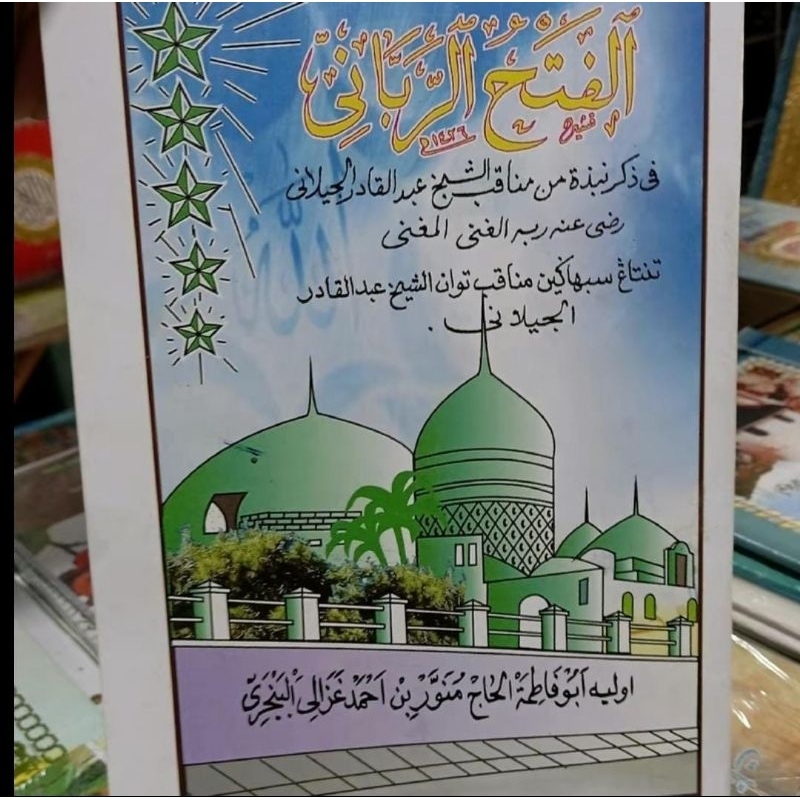 اَلْفَتْحُ الرَّبَّانِيّ
١٤٢٦
فى ذكر نبذة من مناقب الشيخ عبد القادر الجيلانى
رضى عنه ربه الغنى المغنى
تنتاڠ سبهاݢين مناقب توان الشيخ عبد القادر
الجيلانى .
اوليه اَبُو فَاطِمَة الحَاج مُنَوَّر بِن اَحْمَد غَزَالِى البَنْجَرِىّ